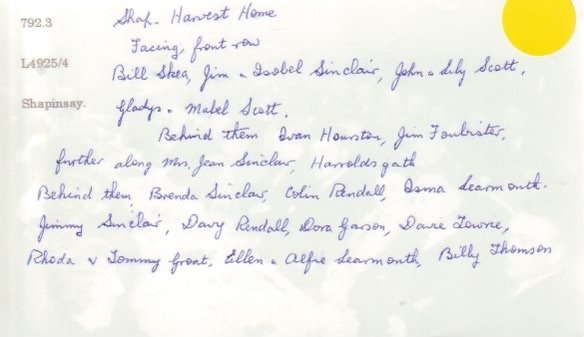 792.3
L4925/4
Shapinsay.
Shap. Harvest Home
Facing, front row
Bill Skea, Jim & Isobel Sinclair, John & Lily Scott,
Gladys & Mabel Scott.
Behind them Ivan Hourston, Jim Foubister,
further along Mrs. Jean Sinclair, Harroldsgath
Behind them Brenda Sinclair, Colin Rendall, Isma Learmonth.
Jimmy Sinclair, Davy Rendall, Dora Garson, Dave Towrie,
Rhoda & Tommy Groat, Ellen & Alfie Learmonth, Billy Thomson